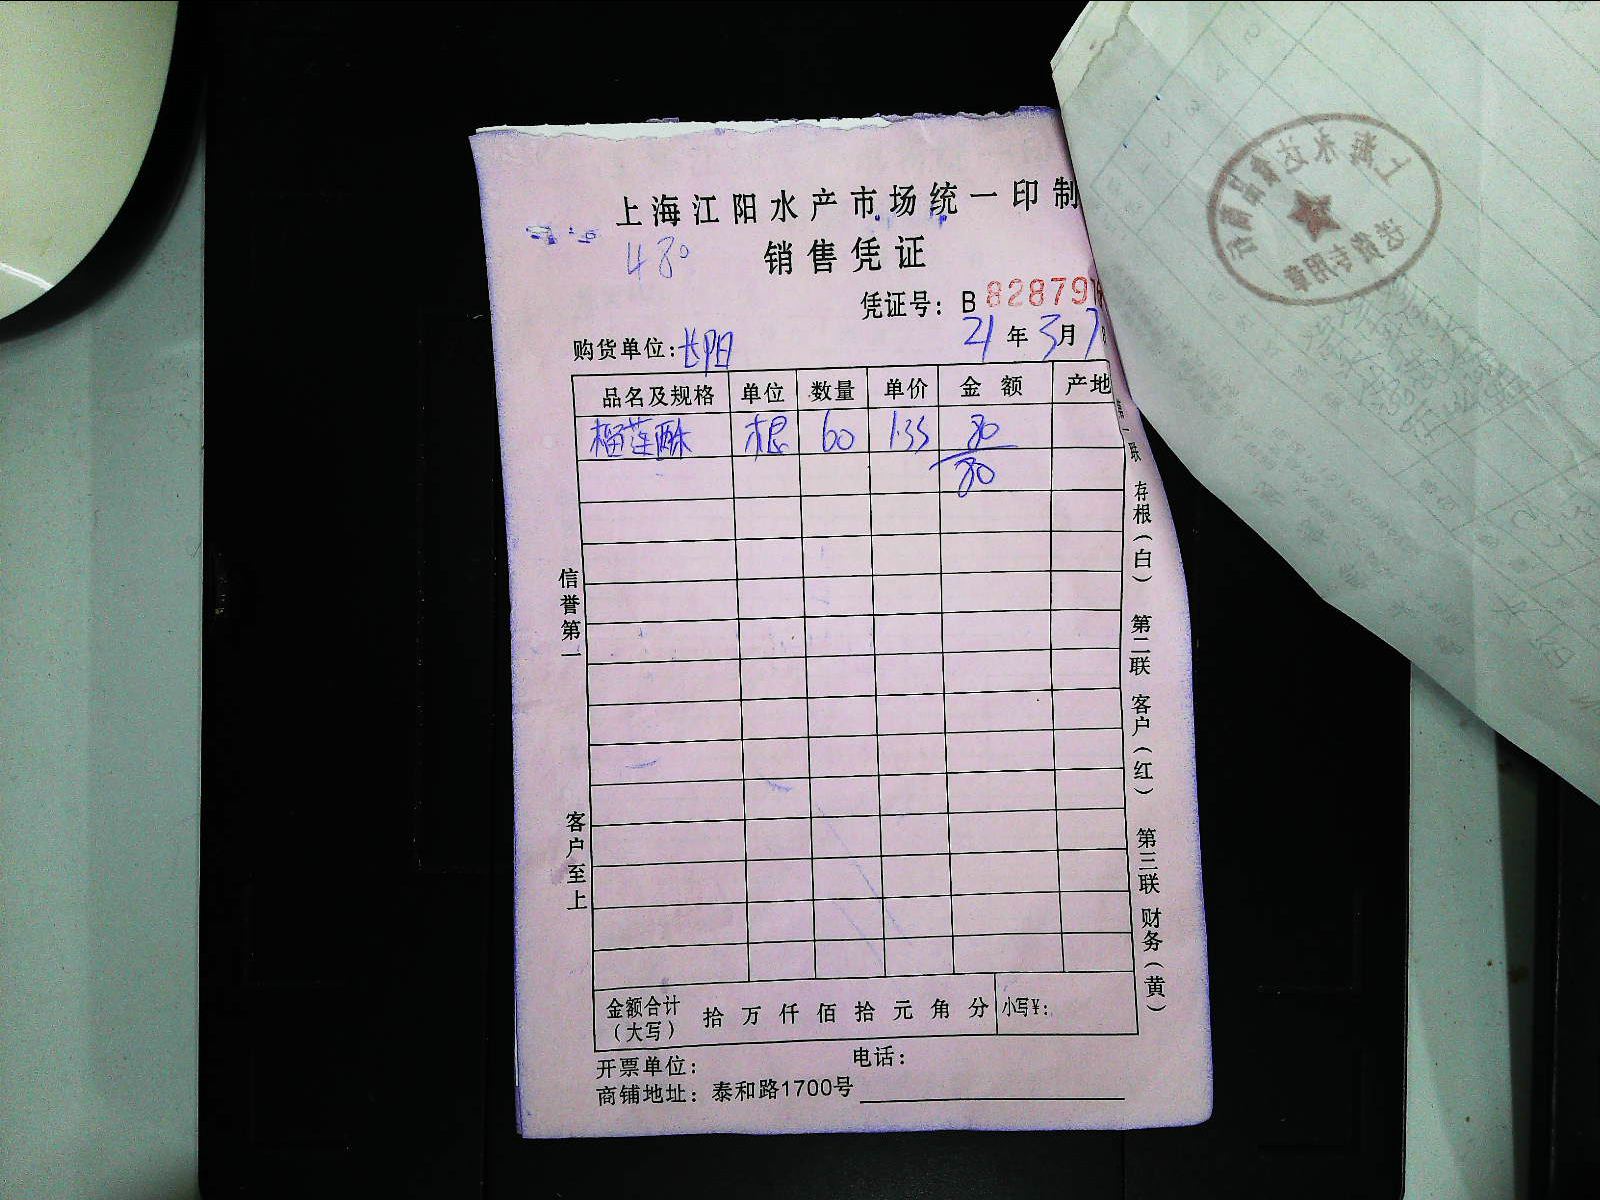 上海江阳水产市场统一印制
480
销售凭证
凭证号：B 828791
购货单位：长阳 21年3月7
品名及规格 单位 数量 单价 金额 产地
榴莲酥 根 60 1.35 80
80
信誉第一
客户至上
第一联 存根（白） 第二联 客户（红） 第三联 财务（黄）
金额合计（大写） 拾万仟佰拾元角分 小写¥：
开票单位： 电话：
商铺地址：泰和路1700号
上海永达食品有限公司
送货专用章